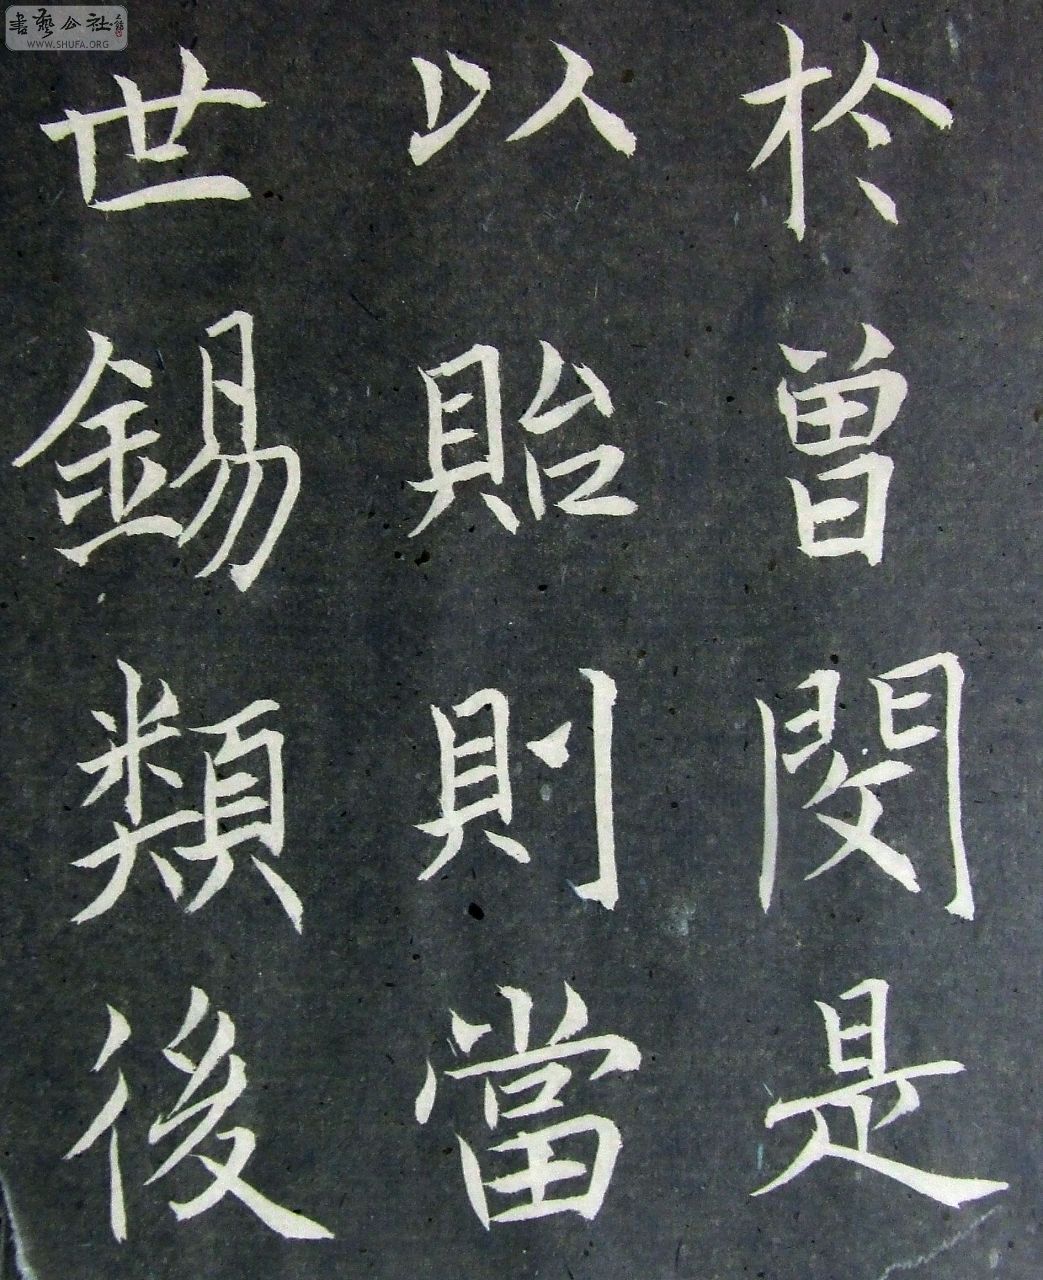 於曾閔是
以貽則當
世錫類後
書藝公社
WWW.SHUFA.ORG